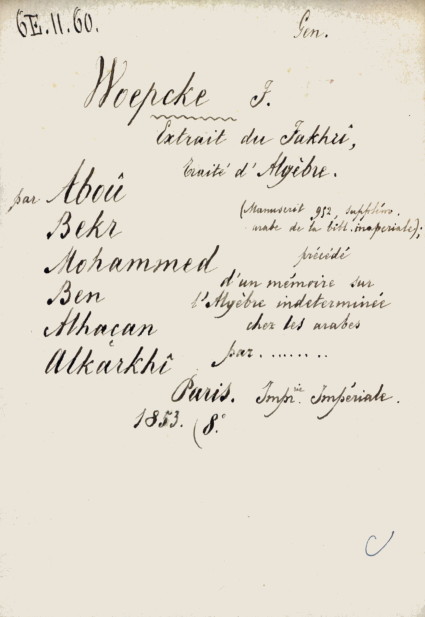 6E.II.60.
Gen.
Woepcke F.
Extrait du Fakhrî,
traité d'Algèbre.
par Aboû
Bekr
(Manuscrit 952, supplém.
arabe de la bibl. impériale);
Mohammed
précédé
Ben
d'un mémoire sur
l'Algèbre indeterminée
Alhaçan
chez les arabes
Alkarkhî
par.......
Paris. Imprie. Impériale.
1853. (8.°